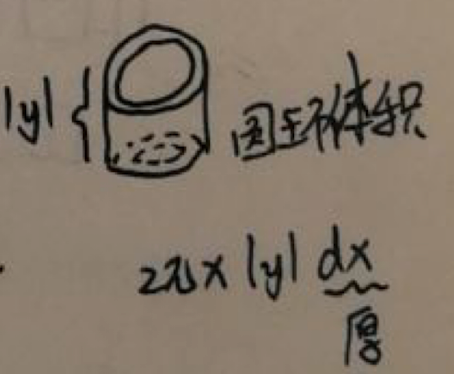 |y| { 圆环体积
2πx |y| dx
厚